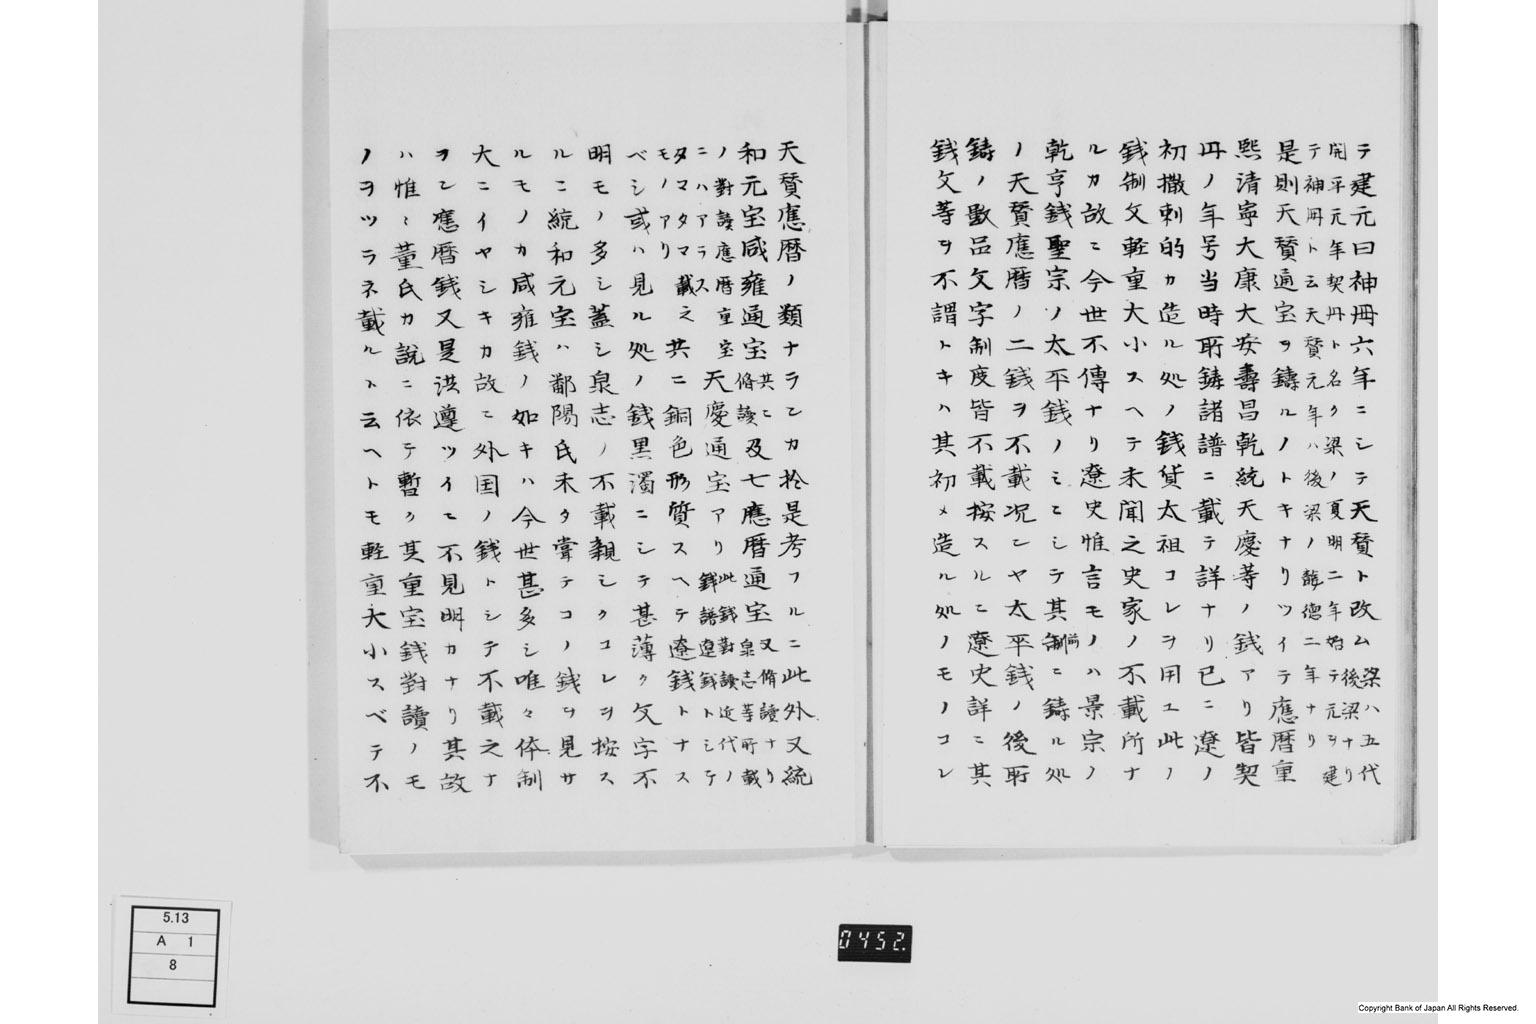 テ建元曰神冊六年ニシテ天賛ト改ム梁ハ五代後梁ナリ
開平元年契丹トク名梁ノ夏明二年始テ元ヲ建
テ神冊ト云天賛元年ハ後梁ノ龍德二年ナリ
是則天賛通宝ヲ鑄ルノトキナリツイテ應暦重
熙清寧大康大安壽昌乾統天慶等ノ銭アリ皆契
丹ノ年号当時所鑄諸譜ニ載テ詳ナリ已ニ遼ノ
初撒剌的カ造ル処ノ銭貨太祖コレヲ用ユ此ノ
銭制文軽重大小スヘテ未聞之史家ノ不載所ナ
ルカ故ニ今世不傳ナリ遼史惟言モノハ景宗ノ
乾亨銭聖宗ノ太平銭ノミニシテ其前制ニ鑄ル処
ノ天賛應暦ノ二銭ヲ不載況ンヤ太平銭ノ後所
鑄ノ數品文字制度皆不載按スルニ遼史詳ニ其
銭文等ヲ不謂トキハ其初メ造ル処ノモノコレ
天賛應暦ノ類ナランカ於是考フルニ此外又統
和元宝咸雍通宝共ニ脩讀及七應暦通宝又脩讀ナリ泉志等所載
ノ對讀應暦重宝ニハアラス天慶通宝アリ此銭對讀近代ノ銭譜遼銭トシテ
タマタマ載之モノアリ共ニ銅色形質スヘテ遼銭トナス
ベシ或ハ見ル処ノ銭黒濁ニシテ甚薄ク文字不
明モノ多シ蓋シ泉志ノ不載親シクコレヲ按ス
ルニ統和元宝ハ鄱陽氏未タ甞テコノ銭ヲ見サ
ルモノカ咸雍銭ノ如キハ今世甚多シ唯々体制
大ニイヤシキカ故ニ外国ノ銭トシテ不載之ナ
ラン應暦銭又是洪遵ツイニ不見明カナリ其故
ハ惟ミ董氏カ說ニ依テ暫ク其重宝銭對讀ノモ
ノヲツラネ載ルト云ヘトモ軽重大小スベテ不
5.13
A 1
8
0452.
Copyright Bank of Japan All Rights Reserved.